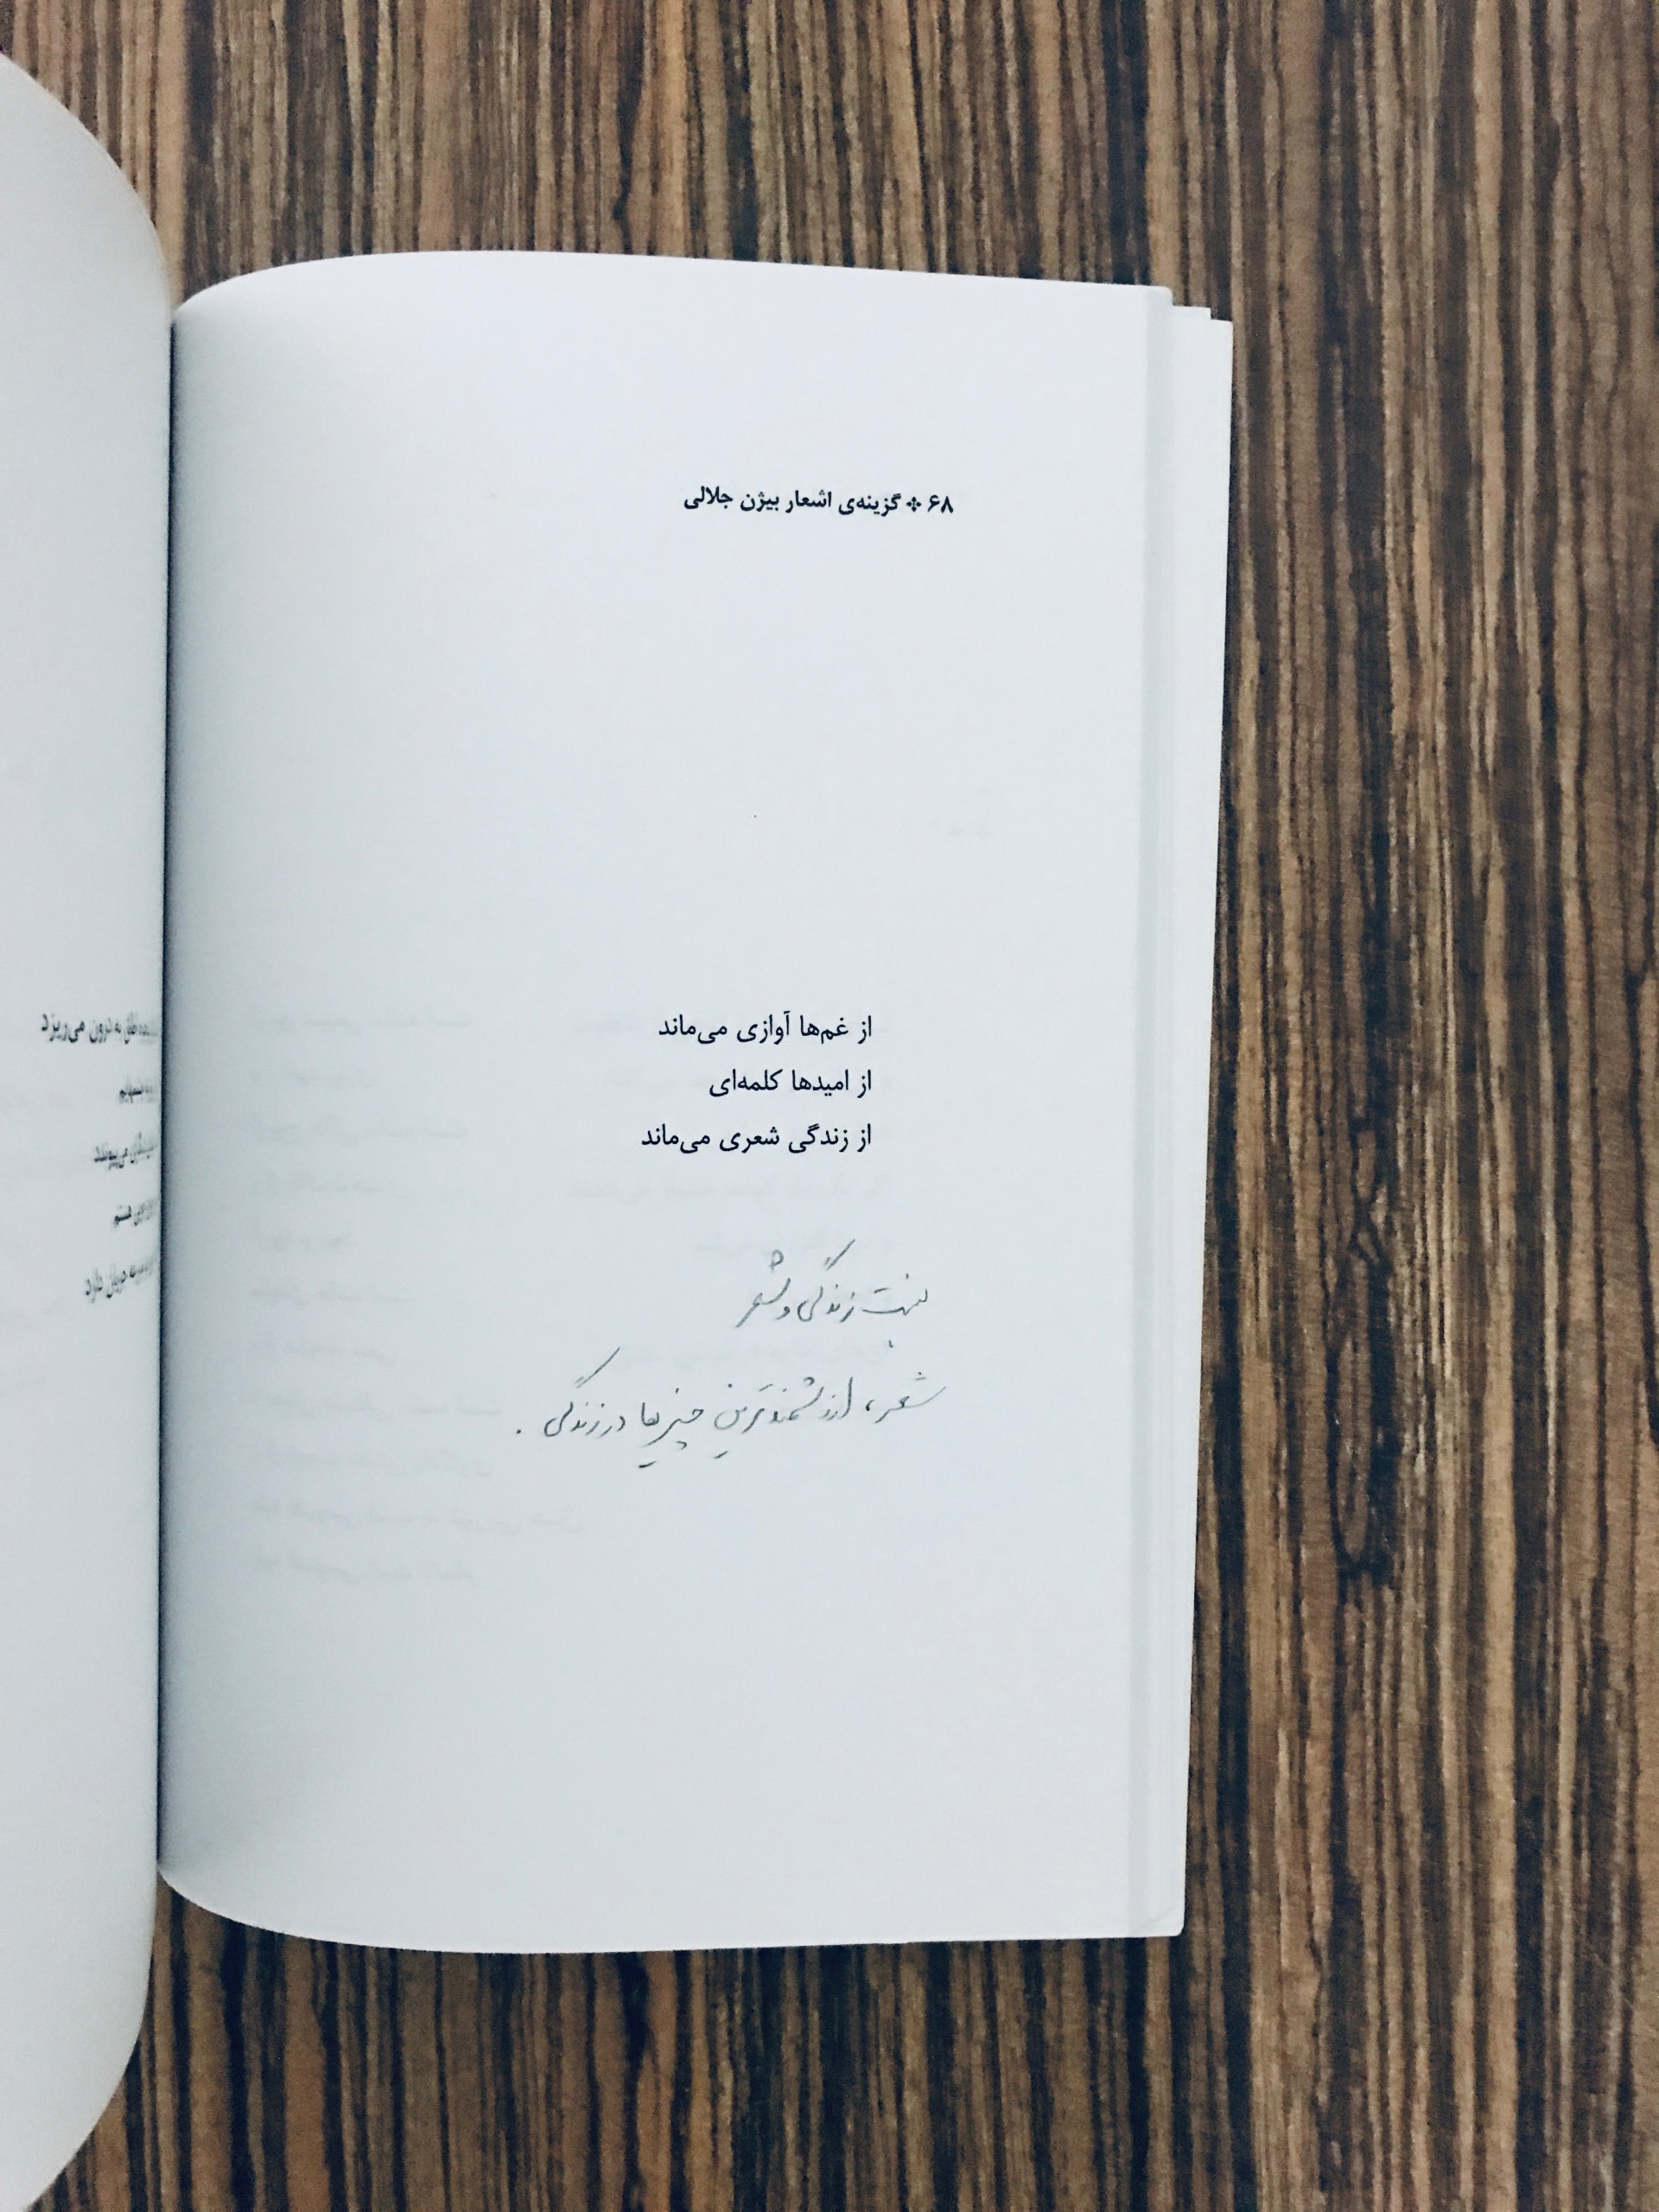 ۶۸ ❖ گزینه‌ی اشعار بیژن جلالی
از غم‌ها آوازی می‌ماند
از امیدها کلمه‌ای
از زندگی شعری می‌ماند
نسبت زندگی و شعر
شعر، ارزشمندترین چیزها در زندگی.
به درون می‌ریزد
می‌پیوندد
هستم
جریان دارد